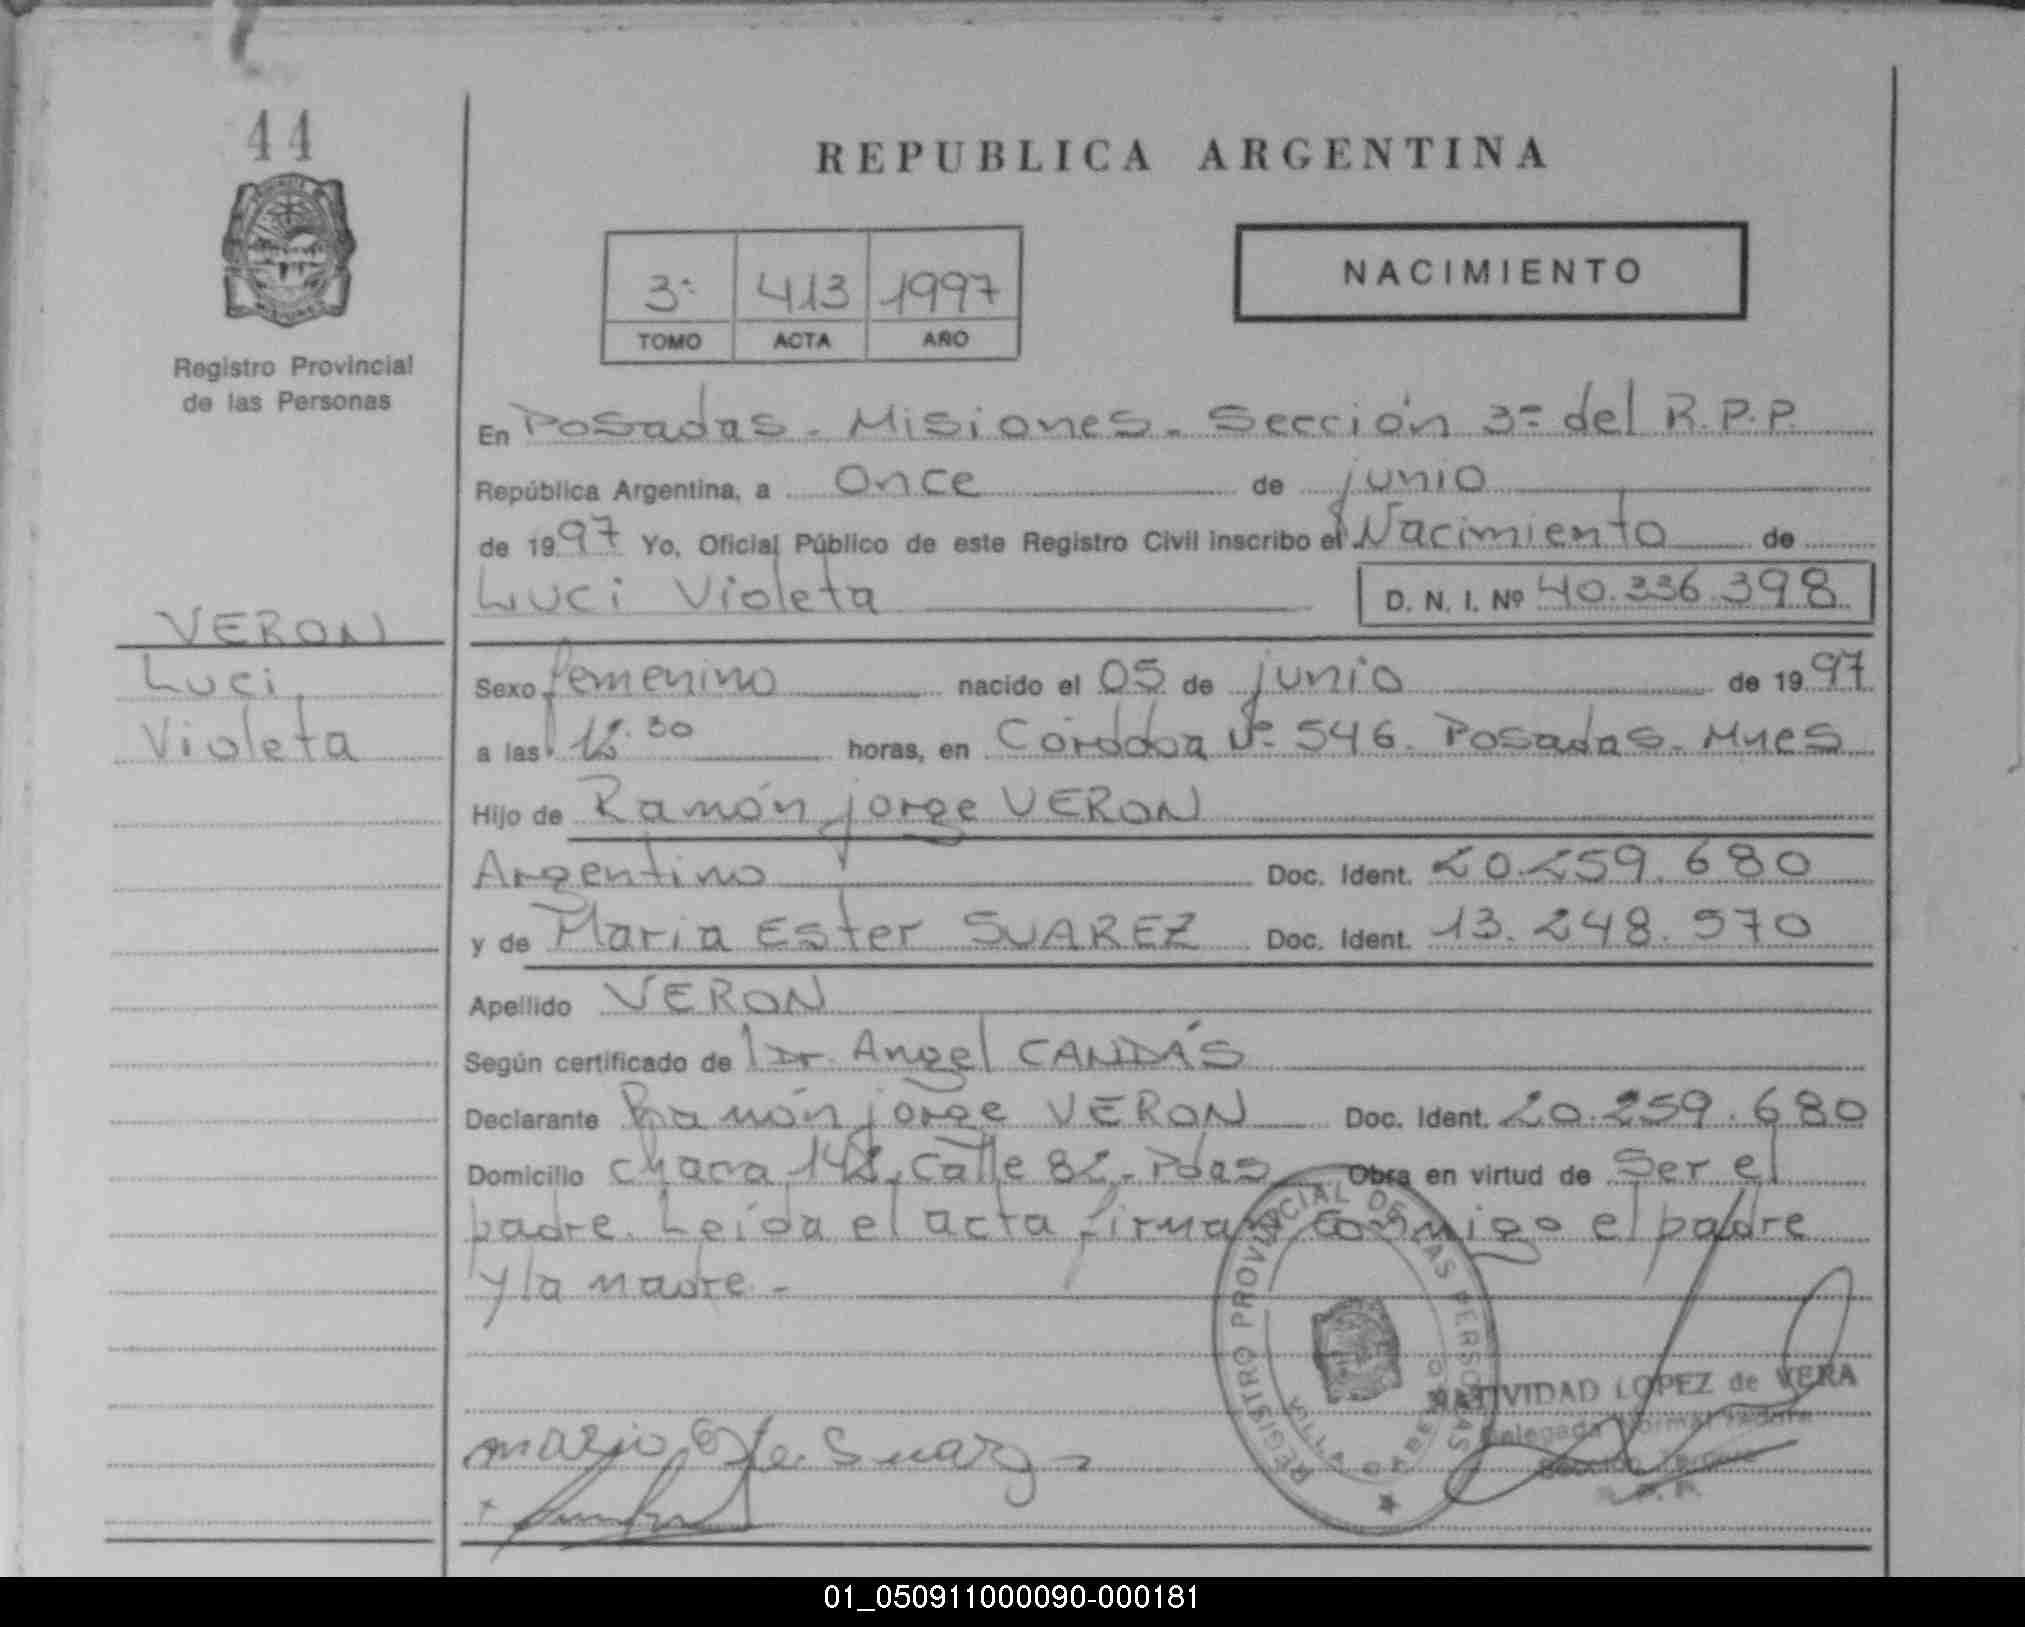 44
Registro Provincial
de las Personas
VERON
Luci
Violeta
REPUBLICA ARGENTINA
3ª 413 1997
TOMO ACTA AÑO
NACIMIENTO
En Posadas - Misiones - Sección 3ª del R.P.P.
República Argentina, a Once de junio
de 1997 Yo, Oficial Público de este Registro Civil inscribo el Nacimiento de
Luci Violeta D. N. I. Nº 40.336.398
Sexo femenino nacido el 05 de junio de 1997
a las 12:30 horas, en Córdoba Nº 546. Posadas - Mnes
Hijo de Ramón jorge VERON
Argentino Doc. Ident. 20.259.680
y de Maria Ester SUAREZ Doc. Ident. 13.248.570
Apellido VERON
Según certificado de Dr. Angel CANDÁS
Declarante Ramón jorge VERON Doc. Ident. 20.259.680
Domicilio chacra 148, Calle 82 - Pdas Obra en virtud de Ser el
padre. Leída el acta firman conmigo el padre
y la madre -
REGISTRO PROVINCIAL DE LAS PERSONAS
VILLA CABELLO
NATIVIDAD LOPEZ de VERA
Delegada Normalizadora
Sección Tercera
R. P. P.
01_050911000090-000181